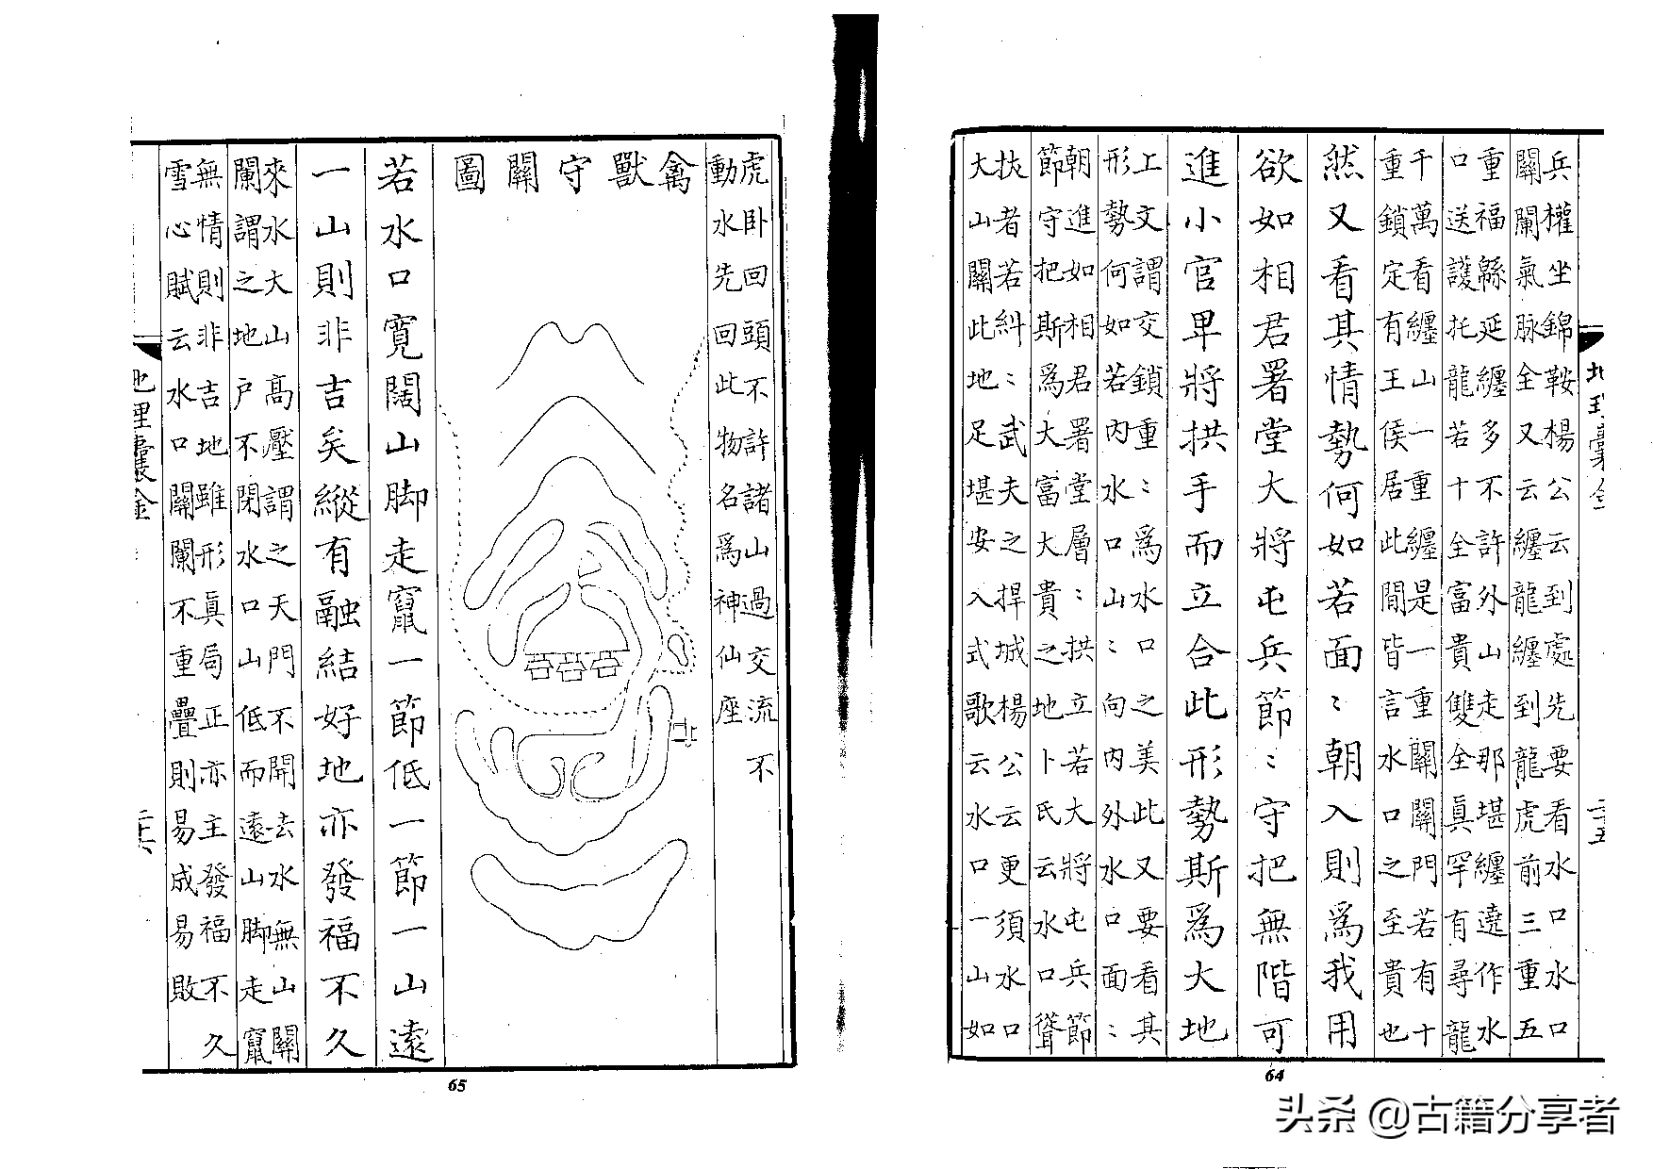 地理囊金
二十五
兵權坐錦鞍楊公云到處先要看水口水口
關闌氣脉全又云纏龍纏到龍虎前三重五
重福緜延纏多不許外山走那堪纏遶作水
口送護托龍若十全富貴雙全真罕有尋龍
千萬看纏山一重纏是一重關關門若有十
重鎖定有王侯居此間皆言水口之至貴也
然又看其情勢何如若面〻朝入則為我用
欲如相君署堂大將屯兵節〻守把無階可
進小官卑將拱手而立合此形勢斯為大地
上文謂交鎖重〻為水口之美此又要看其
形勢何如若內水口山〻向內外水口面〻
朝進如相君署堂層〻拱立若大將屯兵節
節守把斯為大富大貴之地卜氏云水口聳
扶者若糾〻武夫之捍城楊公云更須水口
大山關此地足堪安入式歌云水口一山如
64
虎卧回頭不許諸山過交流不
動水先回此物名為神仙座
禽獸守關圖
若水口寬闊山脚走竄一節低一節一山遠
一山則非吉矣縱有融結好地亦發福不久
來水大山高壓謂之天門不開去水無山關
闌謂之地户不閉水口山低而遠山脚走竄
無情則非吉地雖形真局正亦主發福不久
雪心賦云水口關闌不重疊則易成易敗
地理囊金
二十六
65
头条 @古籍分享者